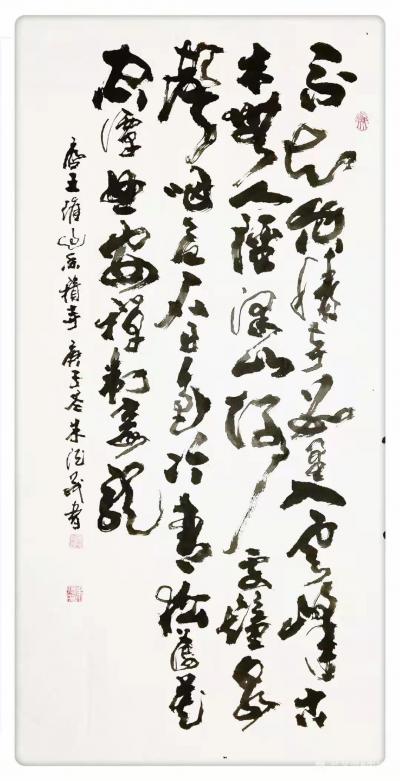 不知香積寺數里入雲峰古
木無人徑深山何處鐘泉
聲咽危石日色冷青松薄暮
空潭曲安禪制毒龍
唐王維過香積寺 庚子 朱書